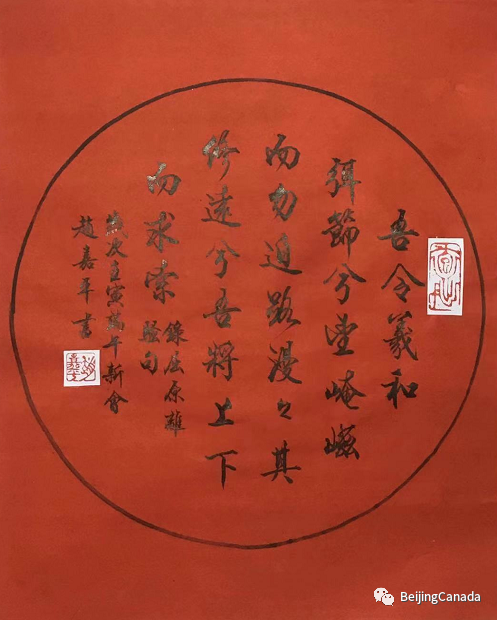 吾令羲和
弭節兮望崦嵫
而勿迫路漫々其
脩遠兮吾將上下
而求索
錄屈原離
騷句
歲次壬寅端午新會
趙嘉書
BeijingCanada